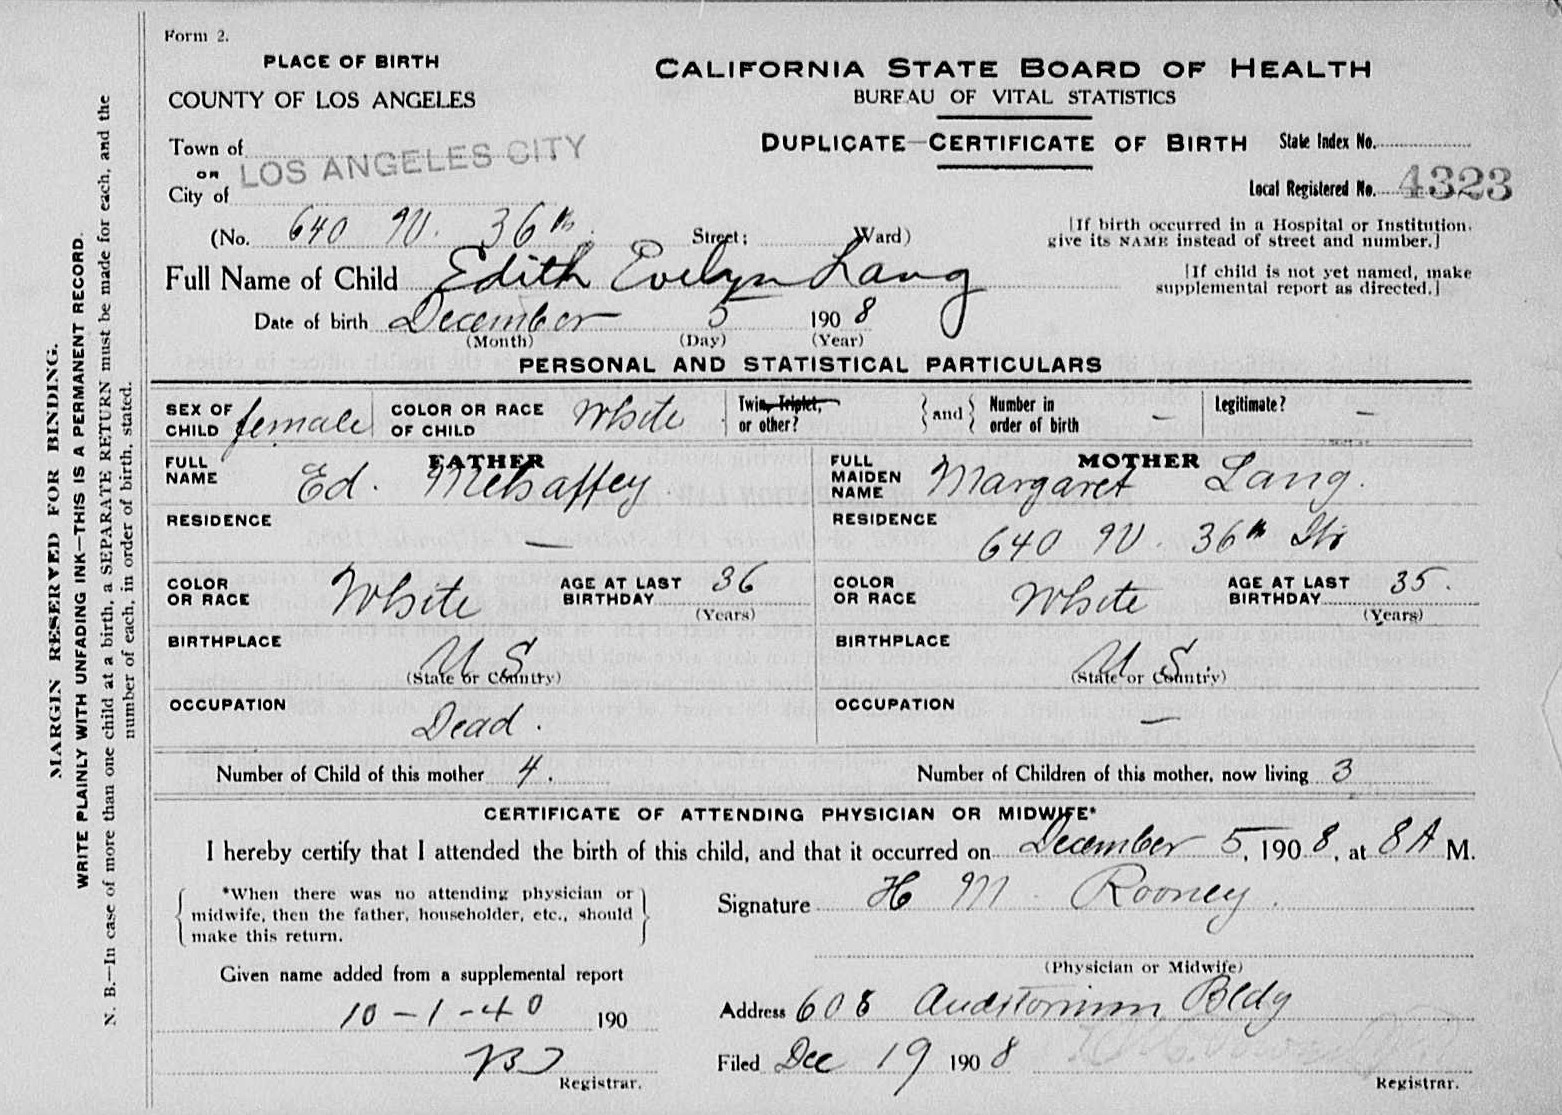 Form 2.
PLACE OF BIRTH
COUNTY OF LOS ANGELES
Town of
OR LOS ANGELES CITY
City of
(No. 640 W. 36th Street; Ward)
CALIFORNIA STATE BOARD OF HEALTH
BUREAU OF VITAL STATISTICS
DUPLICATE—CERTIFICATE OF BIRTH
State Index No.
Local Registered No. 4323
[If birth occurred in a Hospital or Institution,
give its NAME instead of street and number.]
Full Name of Child Edith Evelyn Lang
[If child is not yet named, make
supplemental report as directed.]
Date of birth December 5 1908
(Month) (Day) (Year)
PERSONAL AND STATISTICAL PARTICULARS
SEX OF CHILD female
COLOR OR RACE OF CHILD White
Twin, Triplet, or other?
{and} Number in order of birth —
Legitimate? —
FATHER
FULL NAME Ed. Mehaffey
RESIDENCE —
COLOR OR RACE White
AGE AT LAST BIRTHDAY 36
(Years)
BIRTHPLACE U S
(State or Country)
OCCUPATION Dead.
MOTHER
FULL MAIDEN NAME Margaret Lang.
RESIDENCE 640 W. 36th Str
COLOR OR RACE White
AGE AT LAST BIRTHDAY 35.
(Years)
BIRTHPLACE U S.
(State or Country)
OCCUPATION —
Number of Child of this mother 4.
Number of Children of this mother, now living 3
CERTIFICATE OF ATTENDING PHYSICIAN OR MIDWIFE*
I hereby certify that I attended the birth of this child, and that it occurred on December 5, 1908, at 8 A M.
*When there was no attending physician or
midwife, then the father, householder, etc., should
make this return.
Signature H M Rooney.
(Physician or Midwife)
Given name added from a supplemental report
10-1-40 190
Registrar.
Address 608 Auditorium Bldg
Filed Dec 19 1908
Registrar.
MARGIN RESERVED FOR BINDING.
WRITE PLAINLY WITH UNFADING INK—THIS IS A PERMANENT RECORD.
N. B.—In case of more than one child at a birth, a SEPARATE RETURN must be made for each, and the
number of each, in order of birth, stated.